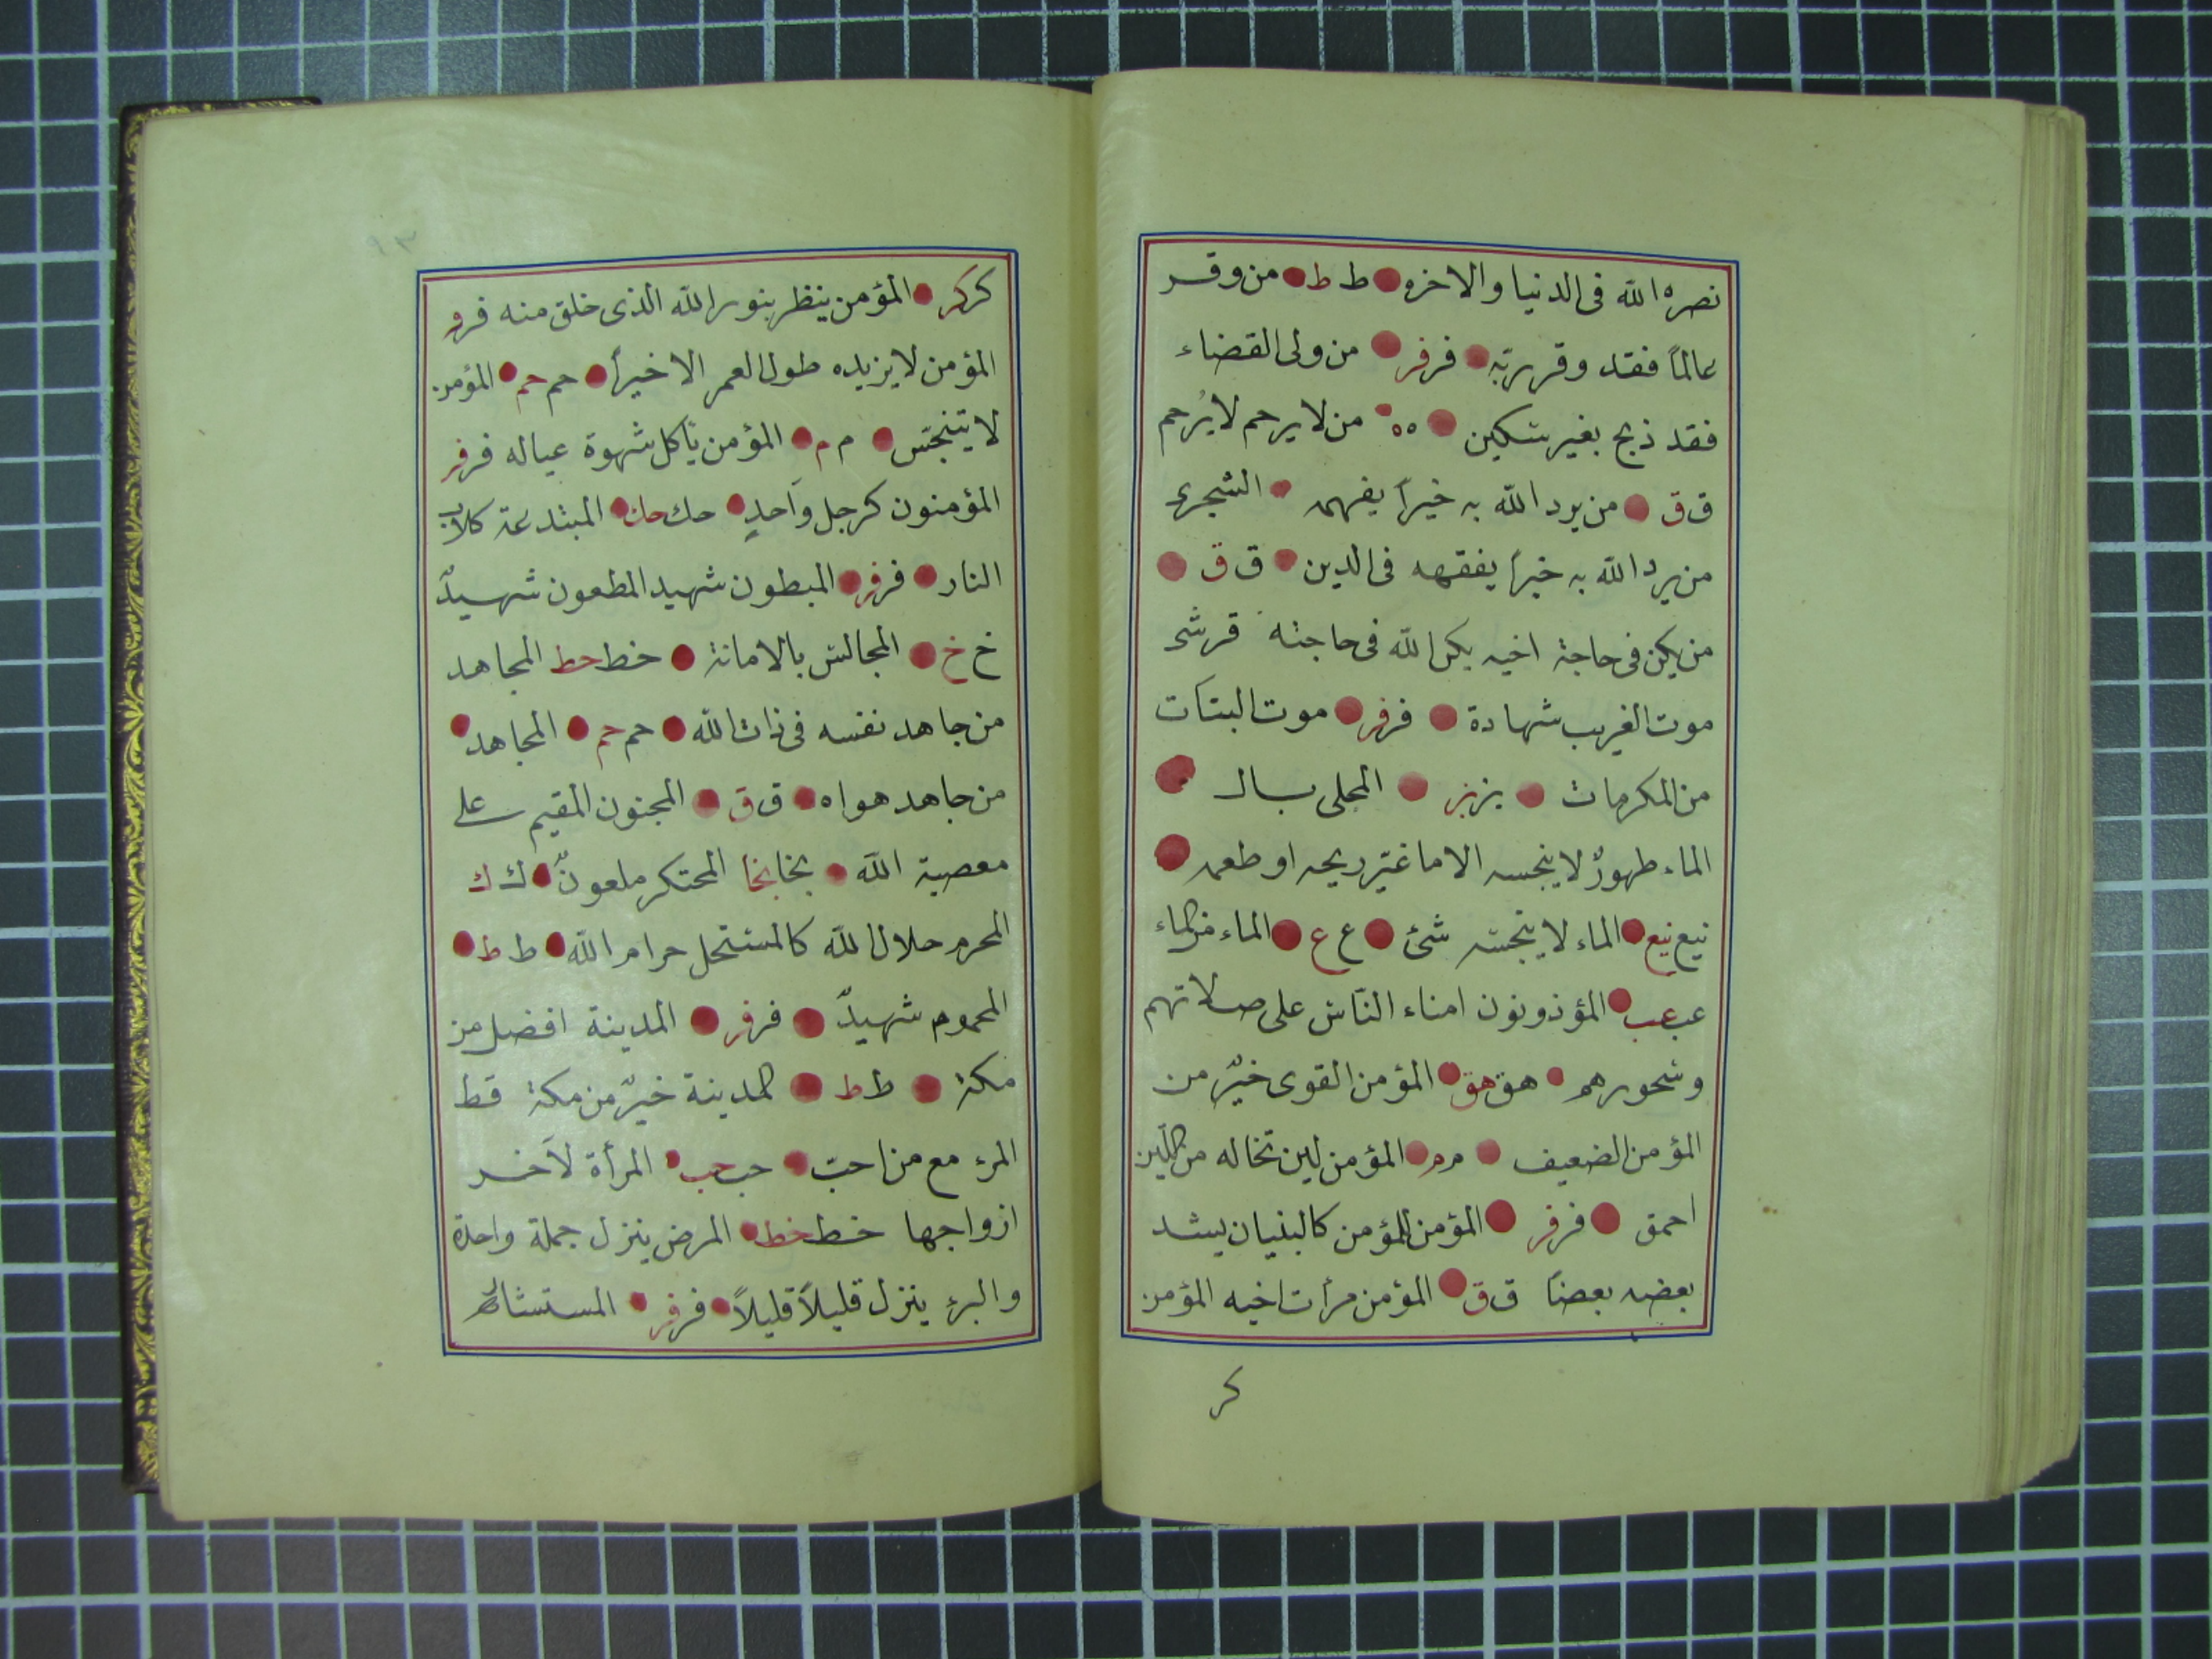 نصره الله فى الدنيا والاخره ط ط من وقر
عالماً فقد وقر ربّه فر فر من ولى القضاء
فقد ذبح بغير سكين ه ه من لا يرحم لا يُرحم
ق ق من يرد الله به خيراً يفهمه الشجرى
من يرد الله به خيراً يفقهه فى الدين ق ق
من يكن فى حاجة اخيه يكن الله فى حاجته
موت الغريب شهادة فر فر موت البنات
من المكرمات بز بز المحلى بال
الماء طهورٌ لا ينجسه الا ما غيّر ريحه او طعمه
نيع نيع الماء لا ينجسّه شئ ع ع الماء من الماء
عب عب المؤذونون امناء النّاس على صلاتهم
وسحورهم هق هق المؤمن القوى خيرٌ من
المؤمن الضعيف م م المؤمن لين تخاله من اللّين
احمق فر فر المؤمن للمؤمن كالبنيان يشد
بعضه بعضاً ق ق المؤمن مرأت اخيه المؤمن
كر
١٣
كر كر المؤمن ينظر بنور الله الذى خلق منه فر فر
المؤمن لا يزيده طول العمر الا خيراً حم حم المؤمن
لا يتنجّس م م المؤمن يأكل شهوة عياله فر فر
المؤمنون كرجل واحدٍ حك حك المبتدعة كلاب
النار فر فر المبطون شهيد المطعون شهيدٌ
خ خ المجالس بالامانة خط خط المجاهد
من جاهد نفسه فى ذات الله حم حم المجاهد
من جاهد هواه ق ق المجنون المقيم على
معصية الله نجا نجا المحتكر ملعونٌ ك ك
المحرم حلال الله كالمستحل حرام الله ط ط
المحموم شهيدٌ فر فر المدينة افضل من
مكة ط ط المدينة خيرٌ من مكة قط
المرء مع من احبّ حب حب المرأة لآخر
ازواجها خط خط المرض ينزل جملة واحدة
والبرء ينزل قليلاً قليلاً فر فر المستشار